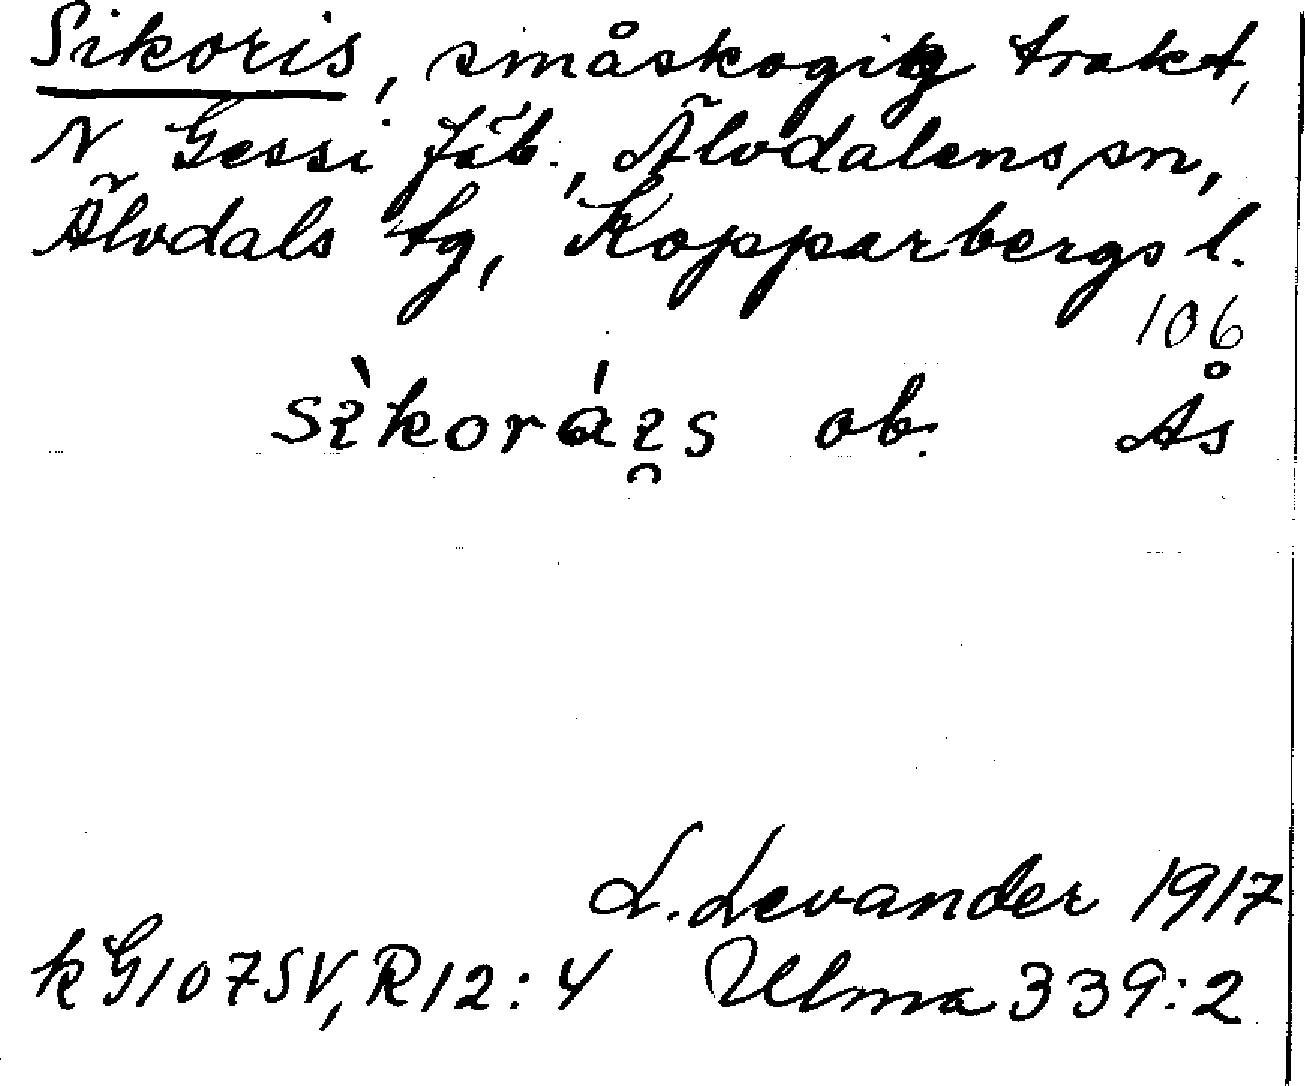 Sikoris, småskogig trakt,
N Gessi fäb., Älvdalens sn,
Älvdals tg, Kopparbergs l.
106
sìkoráı̯s ob. Ås
L. Levander 1917
k G107SV, R12:4 Ulma 339:2